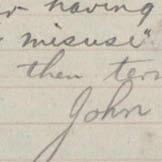 having
misuse"
then
John